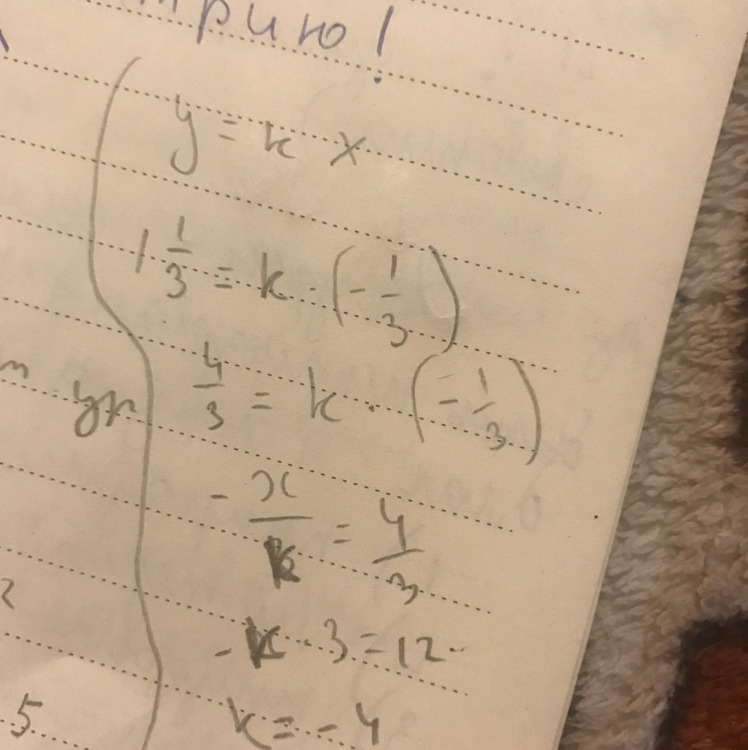 трию!
y = k x
1 1/3 = k · (- 1/3)
уп 4/3 = k · (- 1/3)
- x/k = 4/3
- k · 3 = 12
5 k = - 4